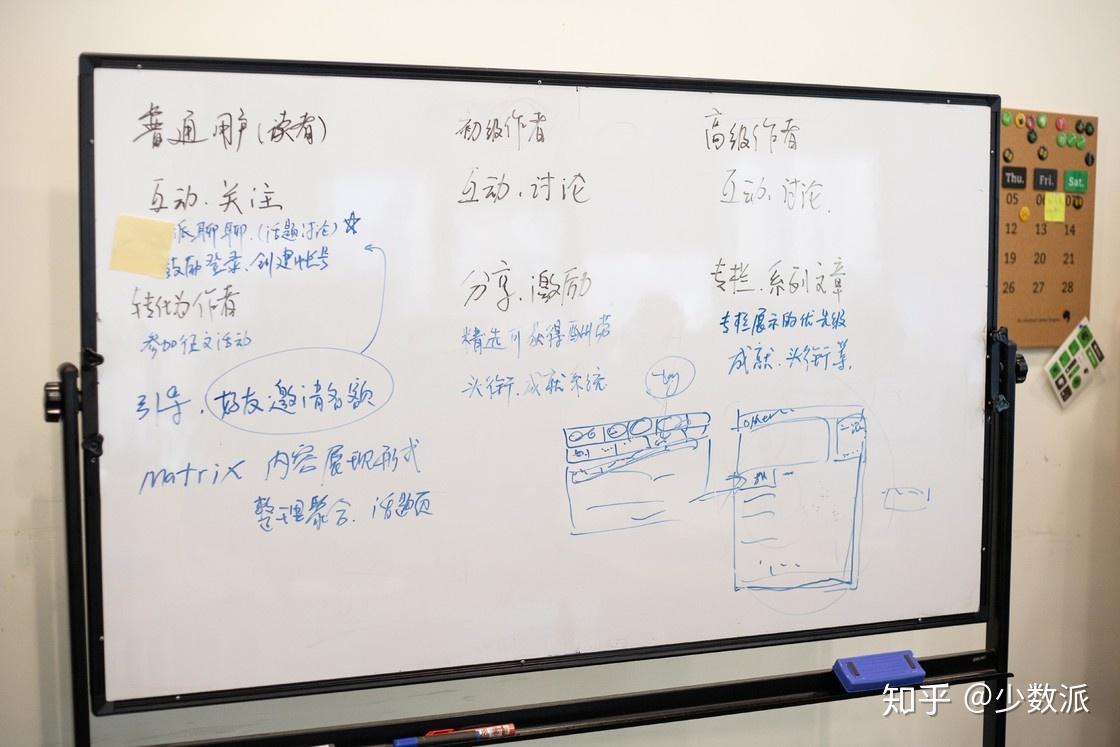 普通用户(读者)
互动.关注
派聊聊.(话题讨论)☆
鼓励登录、创建帐号
转化为作者
参加征文活动
引导, 好友邀请名额
Matrix 内容展现形式
整理聚合. 话题页
初级作者
互动、讨论
分享、激励
精选可获得酬劳
头衔.成就系统
tag
高级作者
互动、讨论.
专栏.系列文章
专栏展示的优先级
成就.头衔等.
other
Thu. Fri. Sat.
05 06 07
12 13 14
19 20 21
26 27 28
知乎 @少数派